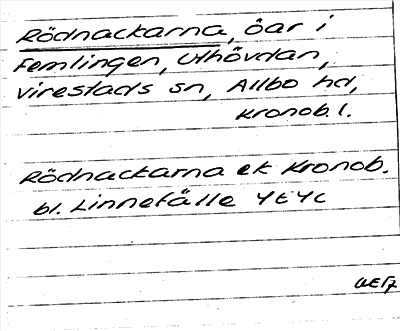 Rödnackarna, öar i
Femlingen, Uhövdan,
Virestads sn, Allbo hd,
Kronob. l.
Rödnackarna ek Kronob.
bl. Linnefälle 4E4c